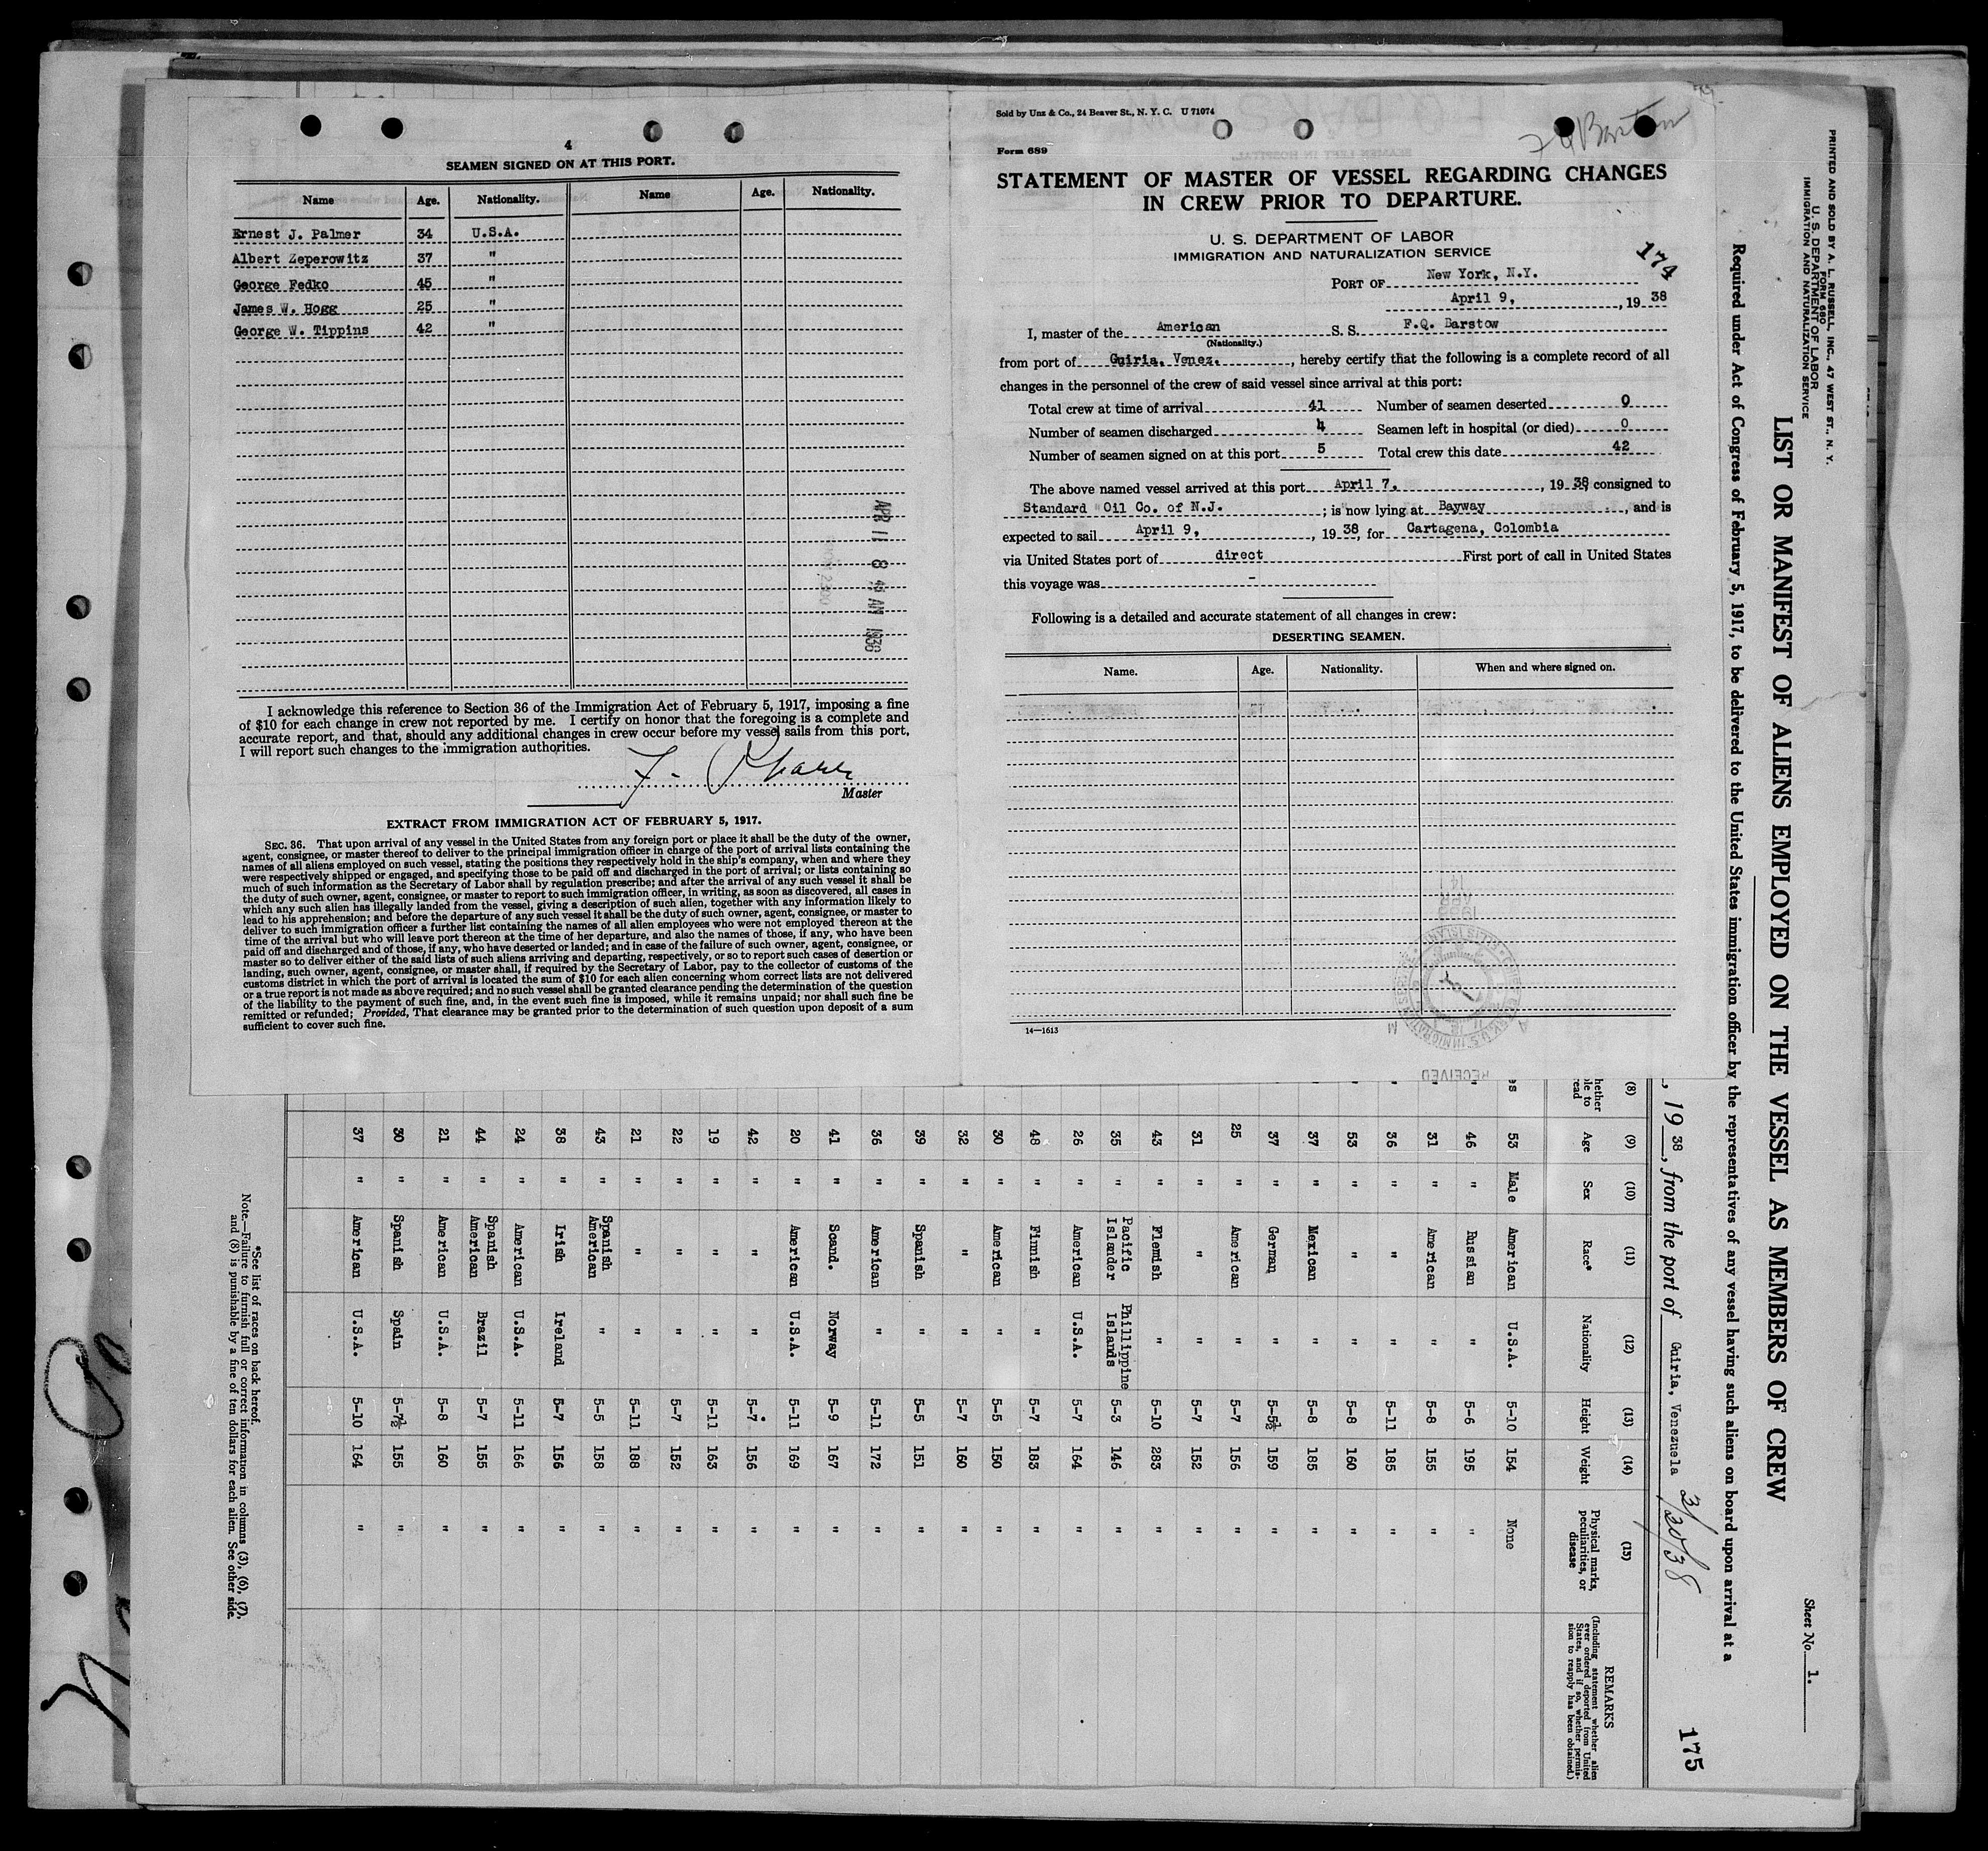 4
SEAMEN SIGNED ON AT THIS PORT.
Name Age. Nationality. Name Age. Nationality.
Ernest J. Palmer 34 U.S.A.
Albert Zeperowitz 37 "
George Fedko 45 "
James W. Hogg 25 "
George W. Tippins 42 "
APR 11 8 45 AM 1938
I acknowledge this reference to Section 36 of the Immigration Act of February 5, 1917, imposing a fine
of $10 for each change in crew not reported by me. I certify on honor that the foregoing is a complete and
accurate report, and that, should any additional changes in crew occur before my vessel sails from this port,
I will report such changes to the immigration authorities.
Master
EXTRACT FROM IMMIGRATION ACT OF FEBRUARY 5, 1917.
SEC. 36. That upon arrival of any vessel in the United States from any foreign port or place it shall be the duty of the owner,
agent, consignee, or master thereof to deliver to the principal immigration officer in charge of the port of arrival lists containing the
names of all aliens employed on such vessel, stating the positions they respectively hold in the ship's company, when and where they
were respectively shipped or engaged, and specifying those to be paid off and discharged in the port of arrival; or lists containing so
much of such information as the Secretary of Labor shall by regulation prescribe; and after the arrival of any such vessel it shall be
the duty of such owner, agent, consignee, or master to report to such immigration officer, in writing, as soon as discovered, all cases in
which any such alien has illegally landed from the vessel, giving a description of such alien, together with any information likely to
lead to his apprehension; and before the departure of any such vessel it shall be the duty of such owner, agent, consignee, or master to
deliver to such immigration officer a further list containing the names of all alien employees who were not employed thereon at the
time of the arrival but who will leave port thereon at the time of her departure, and also the names of those, if any, who have been
paid off and discharged and of those, if any, who have deserted or landed; and in case of the failure of such owner, agent, consignee, or
master so to deliver either of the said lists of such aliens arriving and departing, respectively, or so to report such cases of desertion or
landing, such owner, agent, consignee, or master shall, if required by the Secretary of Labor, pay to the collector of customs of the
customs district in which the port of arrival is located the sum of $10 for each alien concerning whom correct lists are not delivered
or a true report is not made as above required; and no such vessel shall be granted clearance pending the determination of the question
of the liability to the payment of such fine, and, in the event such fine is imposed, while it remains unpaid; nor shall such fine be
remitted or refunded; Provided, That clearance may be granted prior to the determination of such question upon deposit of a sum
sufficient to cover such fine.
Sold by Unz & Co., 24 Beaver St., N. Y. C. U 71074
Barstow
Form 689
STATEMENT OF MASTER OF VESSEL REGARDING CHANGES
IN CREW PRIOR TO DEPARTURE.
U. S. DEPARTMENT OF LABOR
IMMIGRATION AND NATURALIZATION SERVICE
174
PORT OF New York, N.Y.
April 9, , 19 38
I, master of the American S. S. F.Q. Barstow
(Nationality.)
from port of Guiria, Venez. , hereby certify that the following is a complete record of all
changes in the personnel of the crew of said vessel since arrival at this port:
Total crew at time of arrival 41 Number of seamen deserted 0
Number of seamen discharged 4 Seamen left in hospital (or died) 0
Number of seamen signed on at this port 5 Total crew this date 42
The above named vessel arrived at this port April 7, , 19 38, consigned to
Standard Oil Co. of N.J. ; is now lying at Bayway , and is
expected to sail April 9, , 19 38, for Cartagena, Colombia
via United States port of direct First port of call in United States
this voyage was -
Following is a detailed and accurate statement of all changes in crew:
DESERTING SEAMEN.
Name. Age. Nationality. When and where signed on.
14—1613
RECEIVED
PRINTED AND SOLD BY A. L. RUSSELL, INC., 47 WEST ST., N. Y.
FORM 680
U. S. DEPARTMENT OF LABOR
IMMIGRATION AND NATURALIZATION SERVICE
Sheet No. 1.
LIST OR MANIFEST OF ALIENS EMPLOYED ON THE VESSEL AS MEMBERS OF CREW
Required under Act of Congress of February 5, 1917, to be delivered to the United States immigration officer by the representatives of any vessel having such aliens on board upon arrival at a
175
, 19 38, from the port of Guiria, Venezuela 3/30/38
(8) (9) (10) (11) (12) (13) (14) (15)
Age Sex Race* Nationality Height Weight Physical marks, peculiarities, or disease
REMARKS (Including statement whether alien ever ordered deported from United States, and if so, whether permission to reapply has been obtained.)
53 Male American U.S.A. 5-10 154 None
46 " Russian " 5-6 195 "
31 " American " 5-8 155 "
36 " " " 5-11 185 "
53 " " " 5-8 160 "
37 " Mexican " 5-8 185 "
37 " German " 5-5½ 159 "
25 " American " 5-7 156 "
31 " " " 5-7 152 "
43 " Flemish " 5-10 283 "
35 " Pacific Islander Phillippine Islands 5-3 146 "
26 " American U.S.A. 5-7 164 "
48 " Finnish " 5-7 183 "
30 " American " 5-5 150 "
32 " " " 5-7 160 "
39 " Spanish " 5-5 151 "
36 " American " 5-11 172 "
41 " Scand. Norway 5-9 167 "
20 " American U.S.A. 5-11 169 "
42 " " " 5-7 156 "
19 " " " 5-11 163 "
22 " " " 5-7 152 "
21 " " " 5-11 188 "
43 " Spanish American " 5-5 158 "
38 " Irish Ireland 5-7 156 "
24 " American U.S.A. 5-11 166 "
44 " Spanish American Brazil 5-7 155 "
21 " American U.S.A. 5-8 160 "
30 " Spanish Spain 5-7½ 155 "
37 " American U.S.A. 5-10 164 "
*See list of races on back hereof.
Note.—Failure to furnish full or correct information in columns (3), (6), (7),
and (8) is punishable by a fine of ten dollars for each alien. See other side.